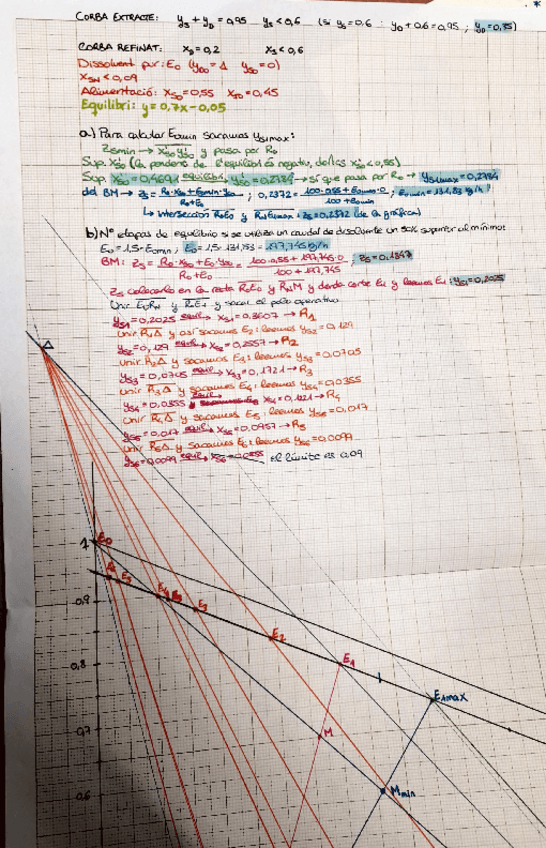 CORBA EXTRACTE: ys + yD = 0,95 ys < 0,6 (si ys = 0,6 : yD + 0,6 = 0,95 ; yD = 0,35)
CORBA REFINAT: xD = 0,2 xs < 0,6
Dissolvent pur: E0 (yD0 = 1 ys0 = 0)
xSN < 0,09
Alimentació: xS0 = 0,55 xD0 = 0,45
Equilibri: y = 0,7x - 0,05
a) Para calcular E0min sacamos ys1max:
y pasa por R0
Sup.
equilibri, → sí que pasa por R0 → ys1max = 0,2784
del BM → zs = ; 0,2372 = 100·0,55 + E0min·0 / 100 + E0min ; E0min = 131,83 kg/h
↳ intersección R0E0 y RNE1max → zs = 0,2372 (de la gráfica)
b) Nº etapas de equilibrio si se utiliza un caudal de disolvente un 50% superior al mínimo:
E0 = 1,5·E0min ; E0 = 197,745 kg/h
BM: zs = R0·xs0 + E0·ys0 / R0 + E0 = 100·0,55 + 197,745·0 / 100 + 197,745 ; zs = 0,1847
zs colocarlo en la recta R0E0 y RNM y donde corte E1 y leemos E1: ys1 = 0,2025
Unir E0RN y R0E1 y sacar el polo operativo
ys1 = 0,2025 equil→ xs1 = 0,3607 → R1
Unir R1Δ y así sacamos E2: leemos ys2 = 0,129
ys2 = 0,129 equil→ xs2 = 0,2557 → R2
Unir R2Δ y sacamos E3: leemos ys3 = 0,0705
ys3 = 0,0705 equil→ xs3 = 0,1721 → R3
Unir R3Δ y sacamos E4: leemos ys4 = 0,0355
ys4 = 0,0355 xs4 = 0,121 → R4
Unir R4Δ y sacamos E5: leemos ys5 = 0,017
ys5 = 0,017 equil→ xs5 = 0,0957 → R5
Unir R5Δ y sacamos E6: leemos ys6 = 0,0099
ys6 = 0,0099 equil→ El límite es 0,09
Δ
1 E0
E5
0,9 E4
E3
E2
0,8 E1
E1max
0,7 M
0,6 Mmin